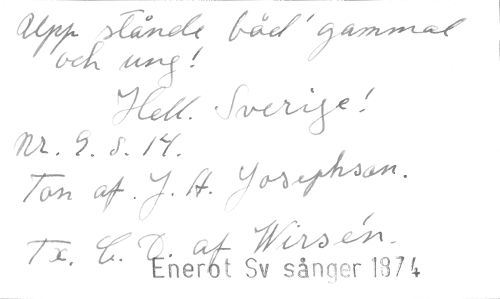 Upp stånde båd' gammal
och ung!
Hell. Sverige!
Nr. 9. s. 14.
Ton af J. A. Josephson.
Tx. C. D. af Wirsén.
Enerot Sv sånger 1874